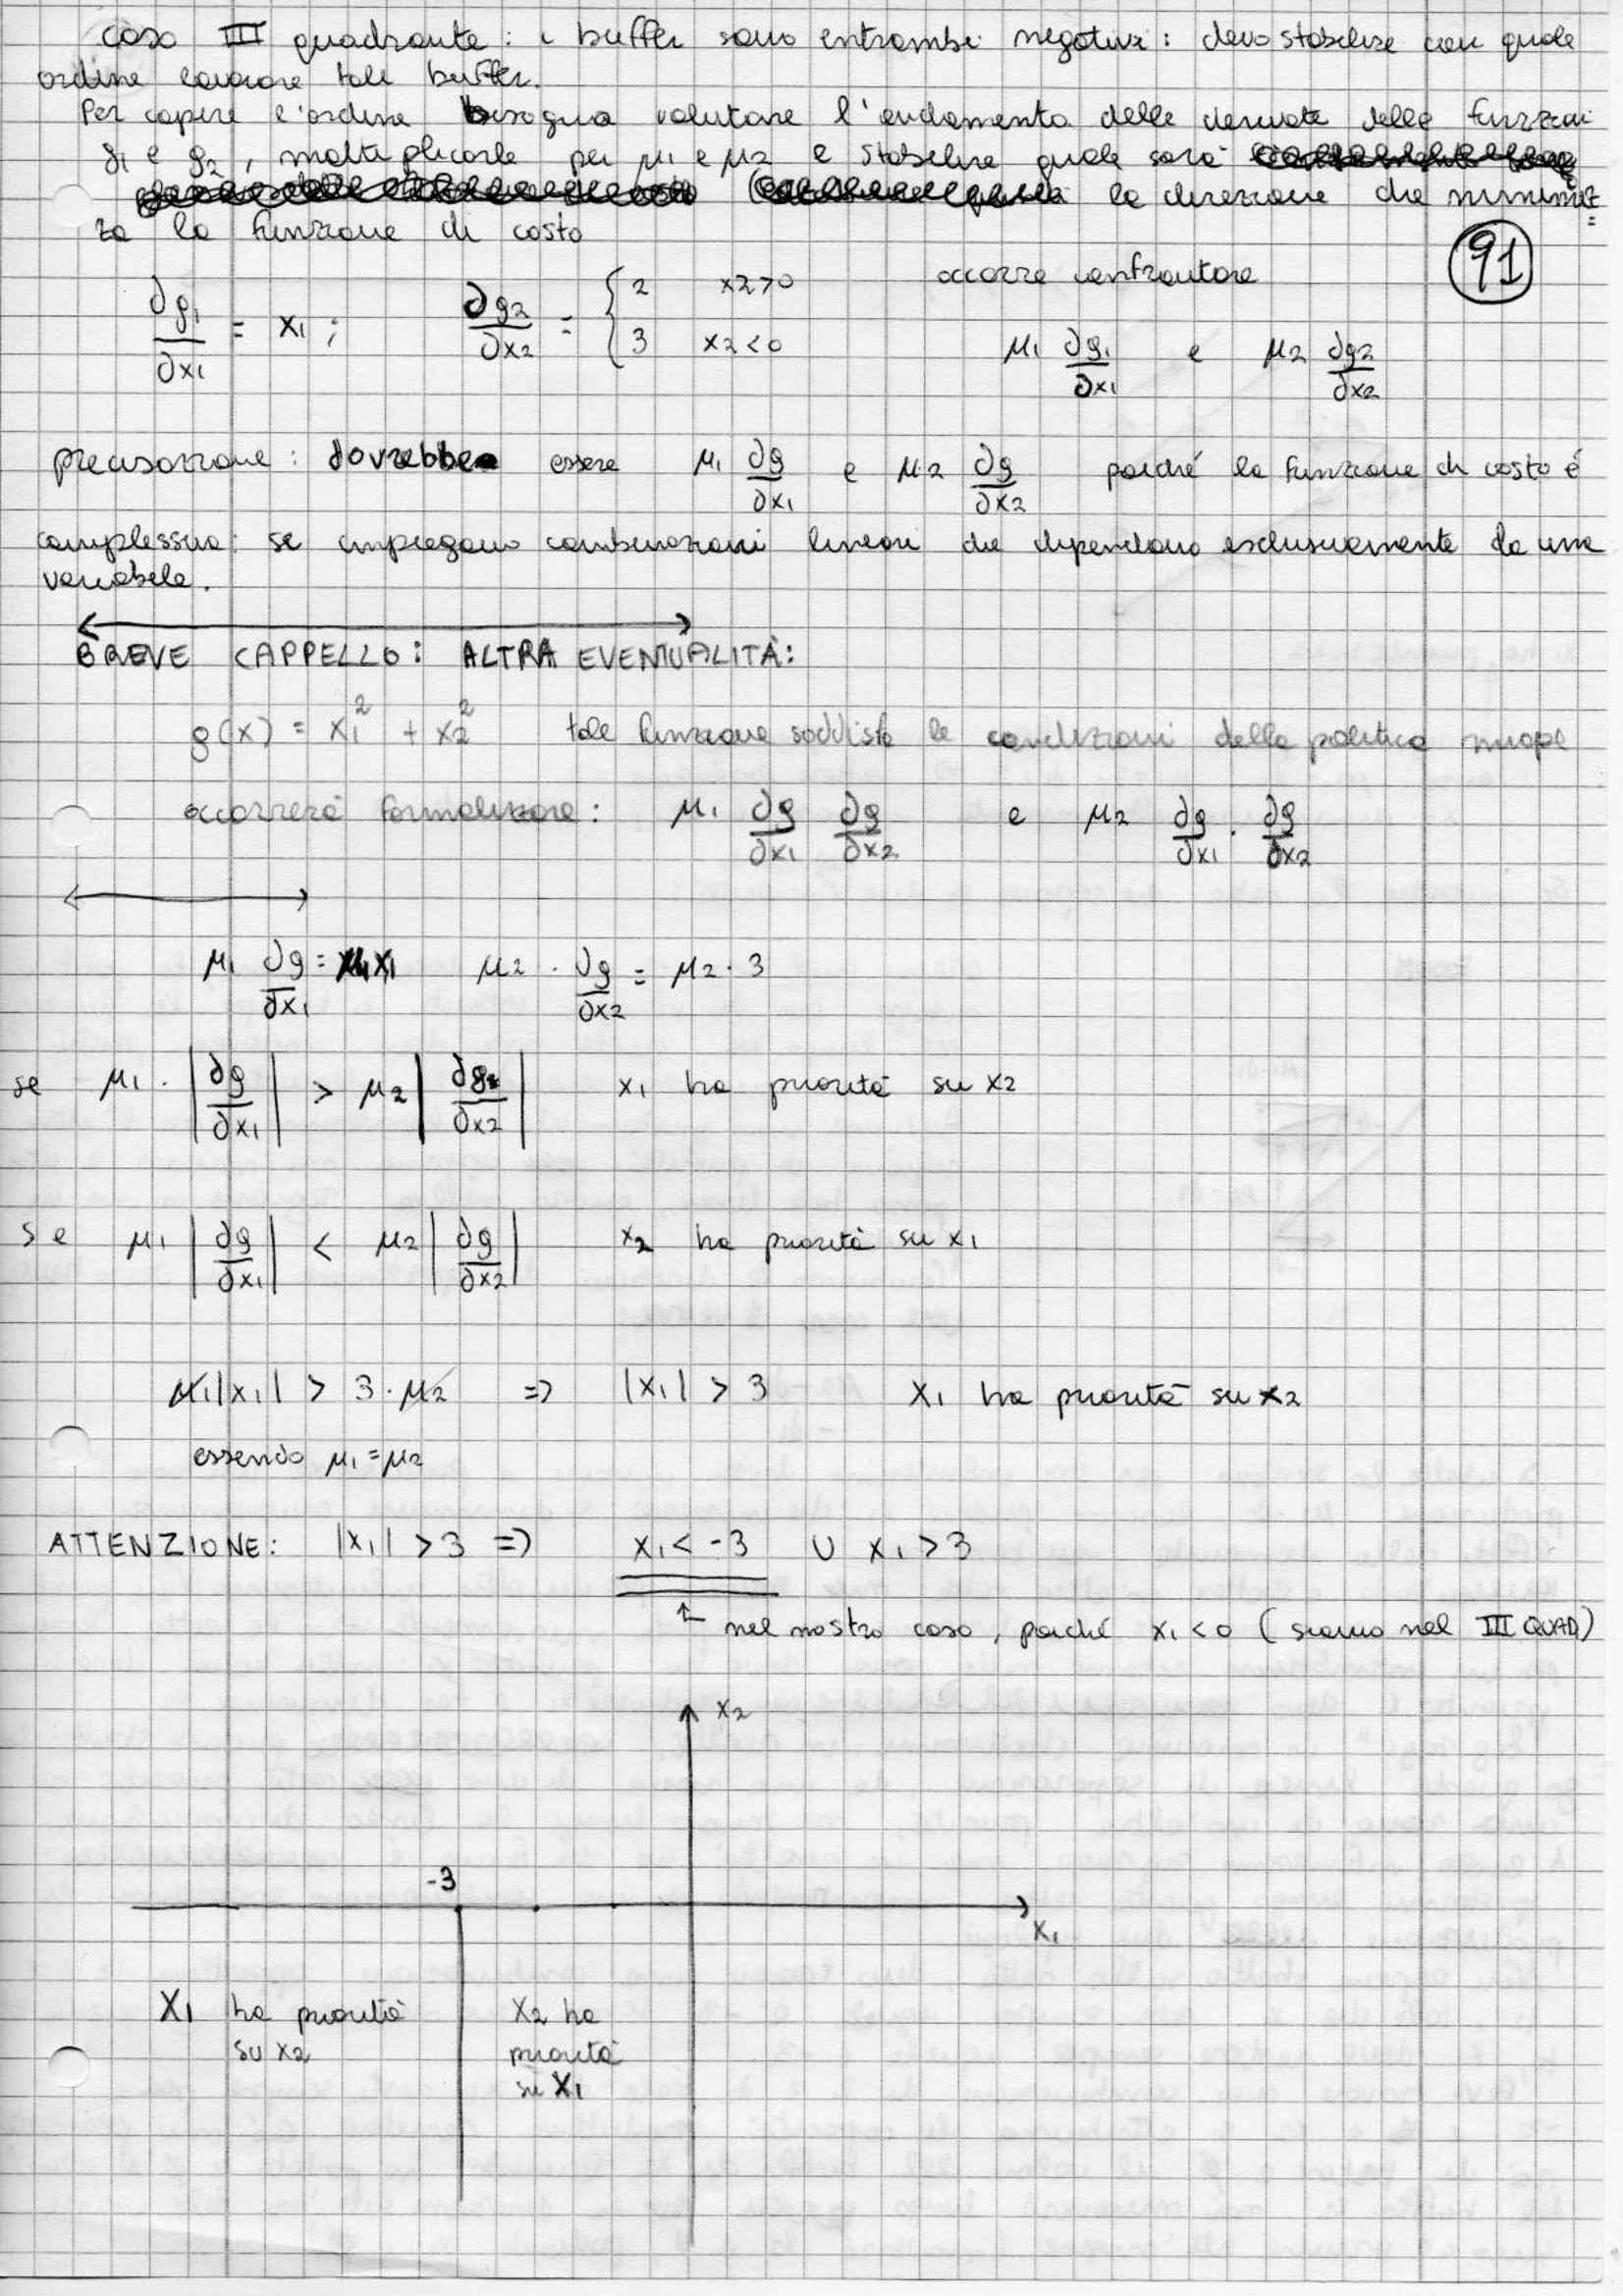 caso III quadrante: i buffer sono entrambi negativi: devo stabilire con quale
ordine lavorare tali buffer.
Per capire l'ordine bisogna valutare l'andamento delle derivate delle funzioni
g1 e g2, moltiplicarle per μ1 e μ2 e stabilire quale sarà
la direzione che minimiz=
za la funzione di costo
91
occorre confrontare
∂g1/∂x1 = x1 ; ∂g2/∂x2 = { 2 x2>0 3 x2<0 μ1 ∂g1/∂x1 e μ2 ∂g2/∂x2
precisazione: dovrebbe essere μ1 ∂g/∂x1 e μ2 ∂g/∂x2 poiché la funzione di costo è
complessiva: se impiegano combinazioni lineari che dipendano esclusivamente da una
variabile.
BREVE CAPPELLO: ALTRA EVENTUALITÀ:
g(x) = x1² + x2² tale funzione soddisfa le condizioni della politica miope
occorrerà formalizzare: μ1 ∂g/∂x1 ∂g/∂x2 e μ2 ∂g/∂x1 · ∂g/∂x2
μ1 ∂g/∂x1 = μ1x1 μ2 · ∂g/∂x2 = μ2 · 3
se μ1 · |∂g/∂x1| > μ2 |∂g/∂x2| x1 ha priorità su x2
se μ1 |∂g/∂x1| < μ2 |∂g/∂x2| x2 ha priorità su x1
μ1|x1| > 3 · μ2 => |x1| > 3 x1 ha priorità su x2
essendo μ1 = μ2
ATTENZIONE: |x1| > 3 => x1 < -3 ∪ x1 > 3
↑ nel nostro caso, poiché x1 < 0 (siamo nel III QUAD)
x2
-3
x1
X1 ha priorità
su x2
X2 ha
priorità
su X1